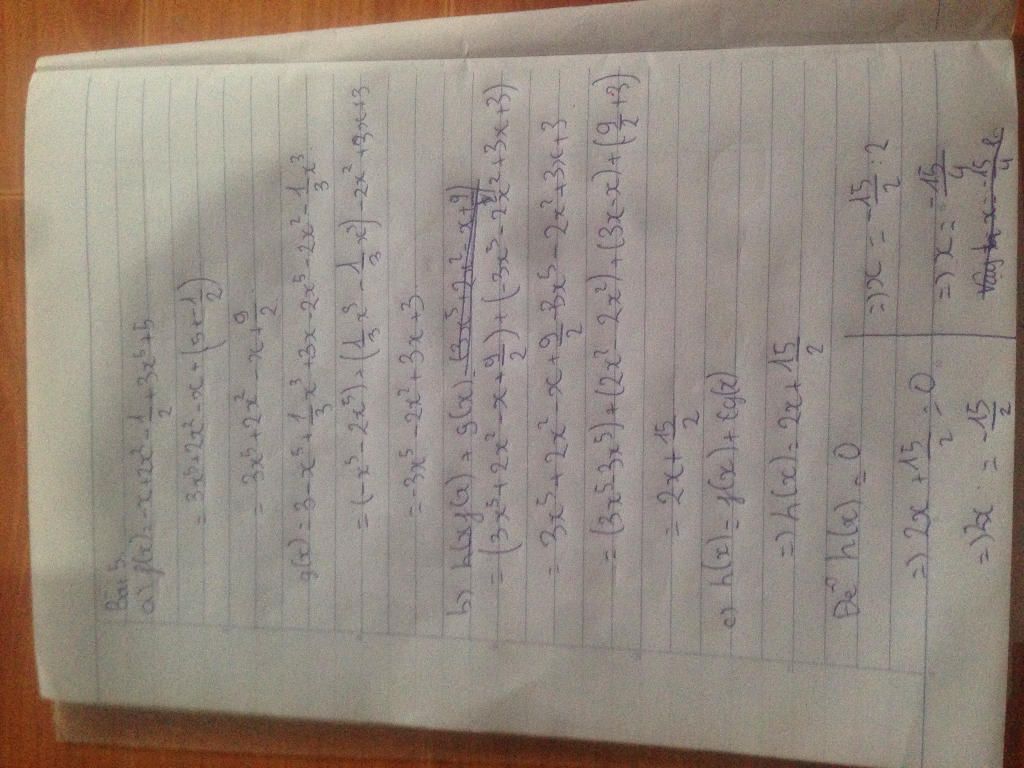 Bài 5
a) f(x) = -x + 2x² - 1/2 + 3x⁵ + 5
= 3x⁵ + 2x² - x + (5 + -1/2)
= 3x⁵ + 2x² - x + 9/2
g(x) = 3 - x⁵ + 1/3 x³ + 3x - 2x⁵ - 2x² - 1/3 x³
= (-x⁵ - 2x⁵) + (1/3 x³ - 1/3 x³) - 2x² + 3x + 3
= -3x⁵ - 2x² + 3x + 3
b) f(x) + g(x) =
= (3x⁵ + 2x² - x + 9/2) + (-3x⁵ - 2x² + 3x + 3)
= 3x⁵ + 2x² - x + 9/2 - 3x⁵ - 2x² + 3x + 3
= (3x⁵ - 3x⁵) + (2x² - 2x²) + (3x - x) + (9/2 + 3)
= 2x + 15/2
c) h(x) = f(x) + g(x)
=> h(x) = 2x + 15/2
Để h(x) = 0
=> 2x + 15/2 = 0
=> 2x = -15/2
=> x = -15/2 : 2
=> x = -15/4